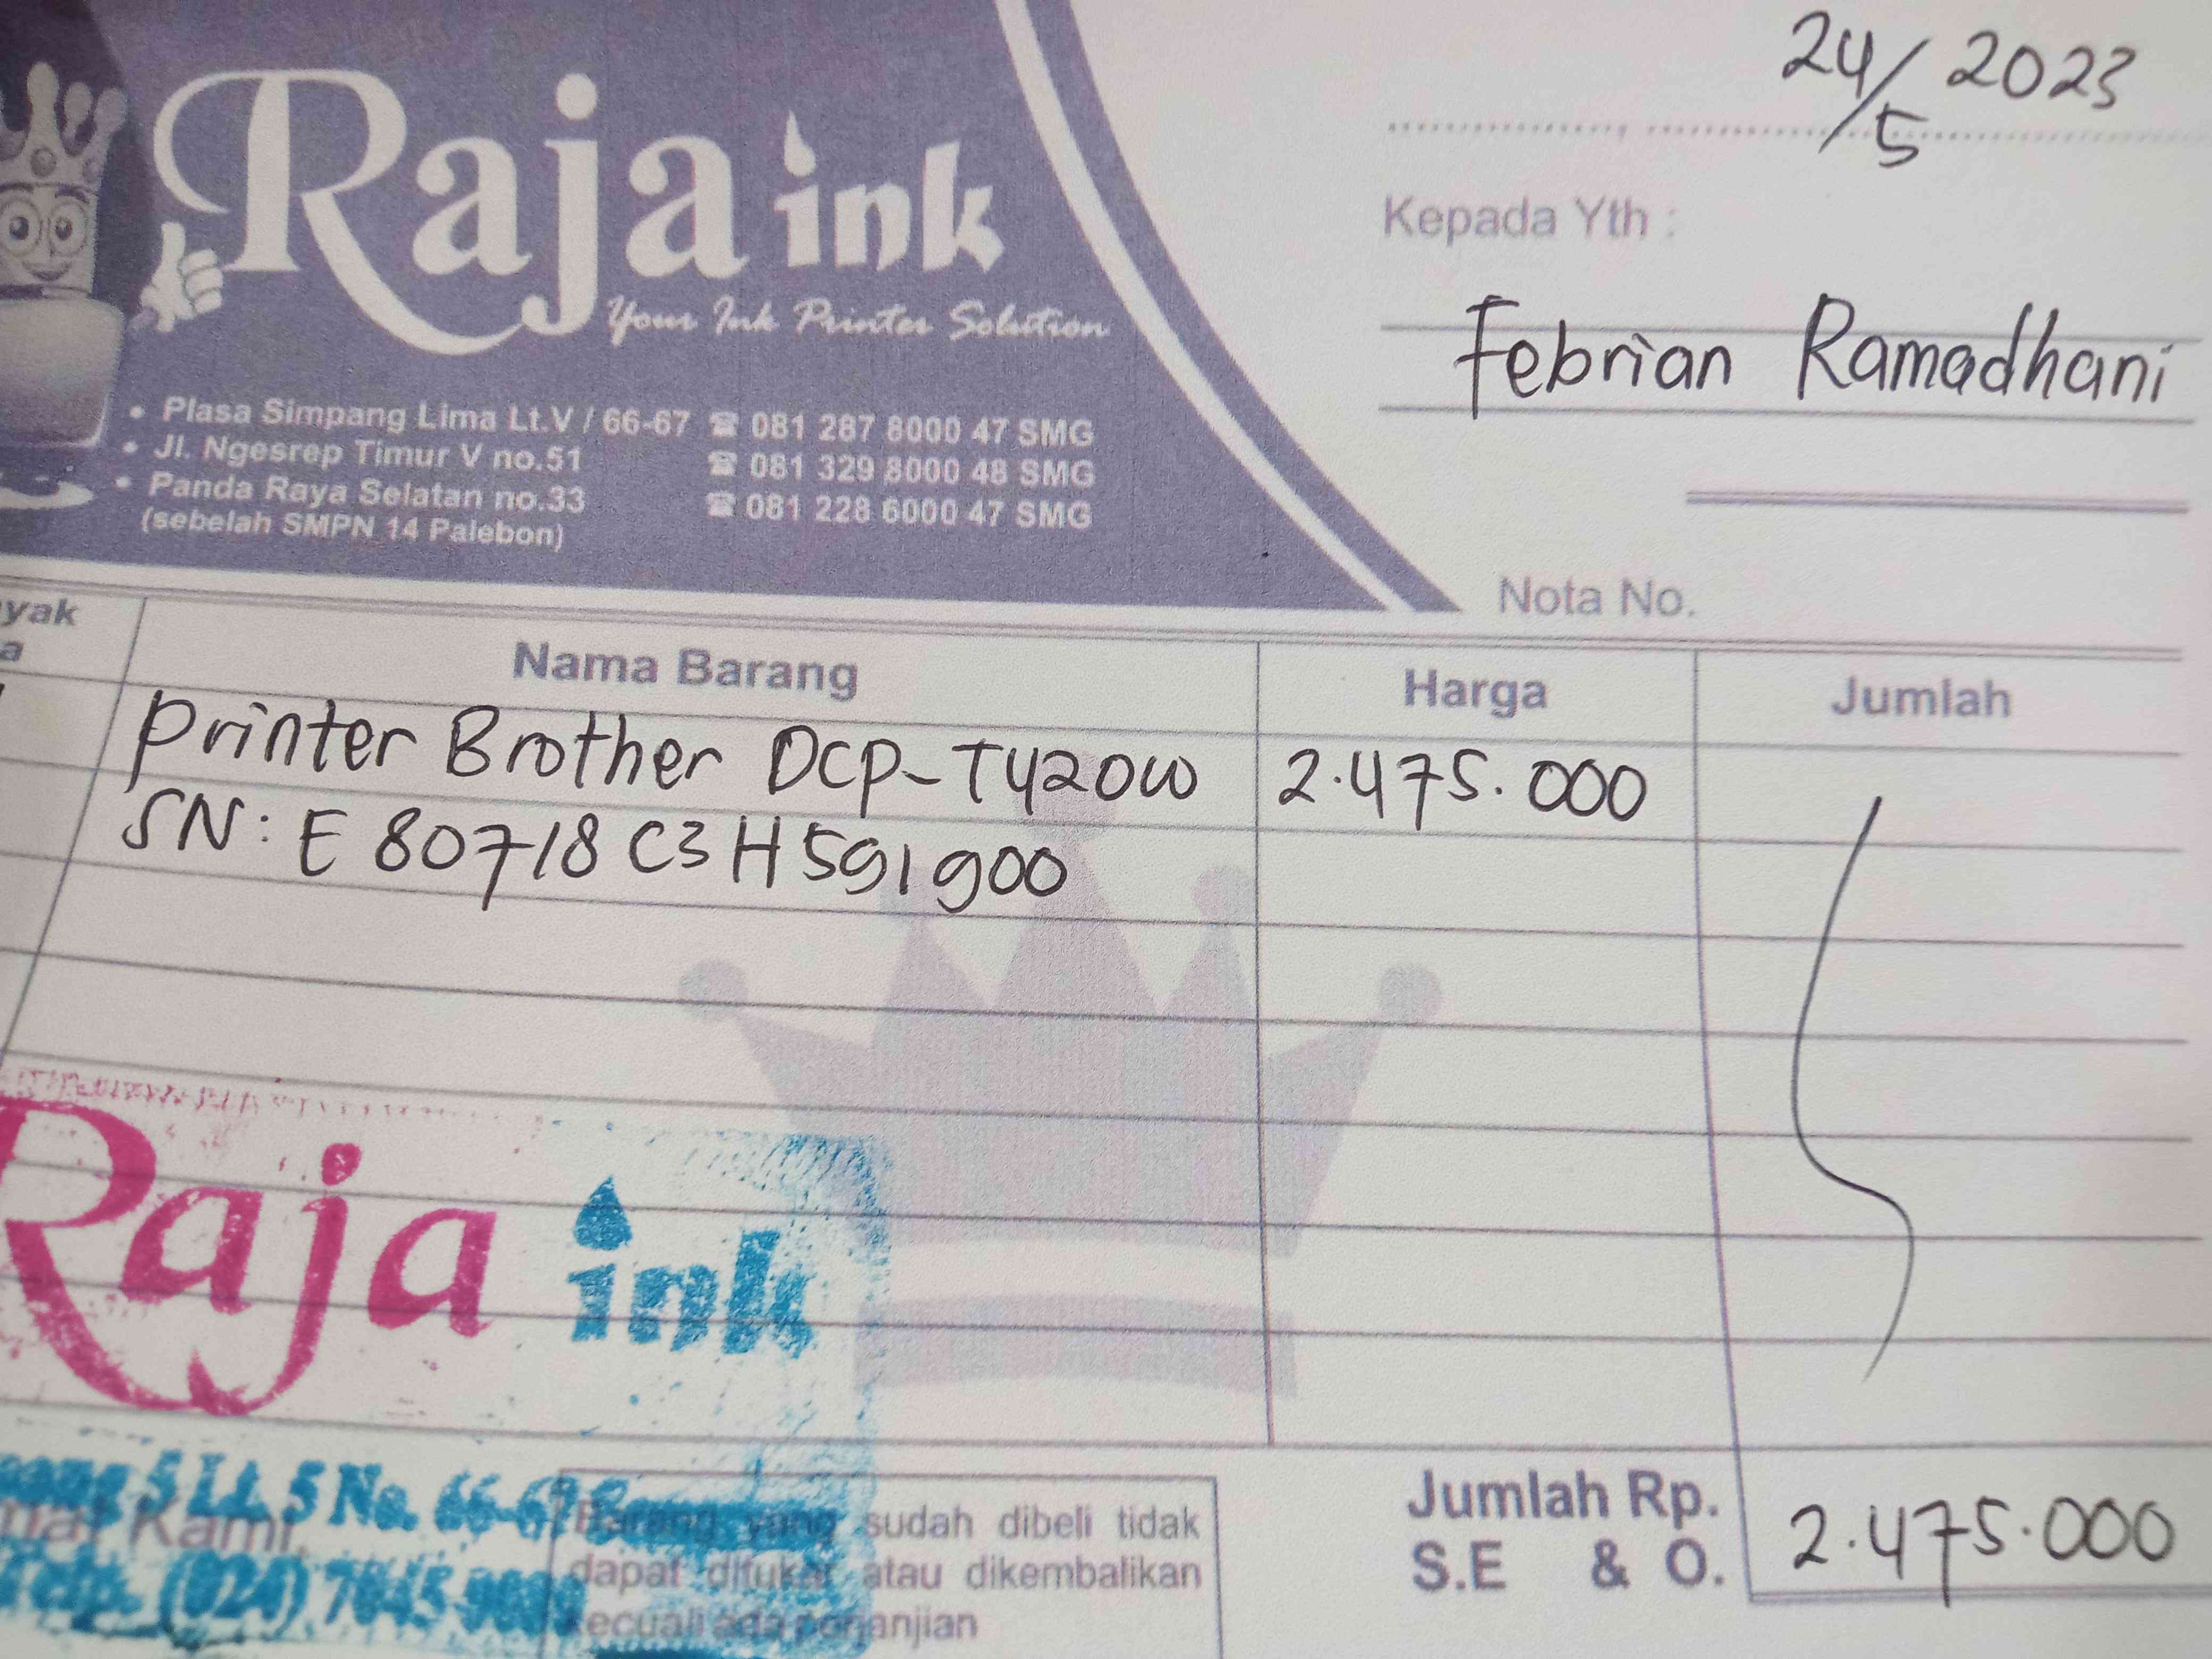 24/5 2023
Raja ink
Your Ink Printer Solution
Kepada Yth :
Febrian Ramadhani
• Plasa Simpang Lima Lt.V / 66-67 ☎ 081 287 8000 47 SMG
• Jl. Ngesrep Timur V no.51 ☎ 081 329 8000 48 SMG
• Panda Raya Selatan no.33 ☎ 081 228 6000 47 SMG
(sebelah SMPN 14 Palebon)
Nota No.
yak
a
Nama Barang Harga Jumlah
Printer Brother DCP-T420W 2.475.000
SN: E80718C3H591900
Raja ink
5 Lt. 5 No. 66-67
Kami,
Telp. (024)
Barang yang sudah dibeli tidak
dapat ditukar atau dikembalikan
kecuali ada perjanjian
Jumlah Rp. 2.475.000
S.E & O.